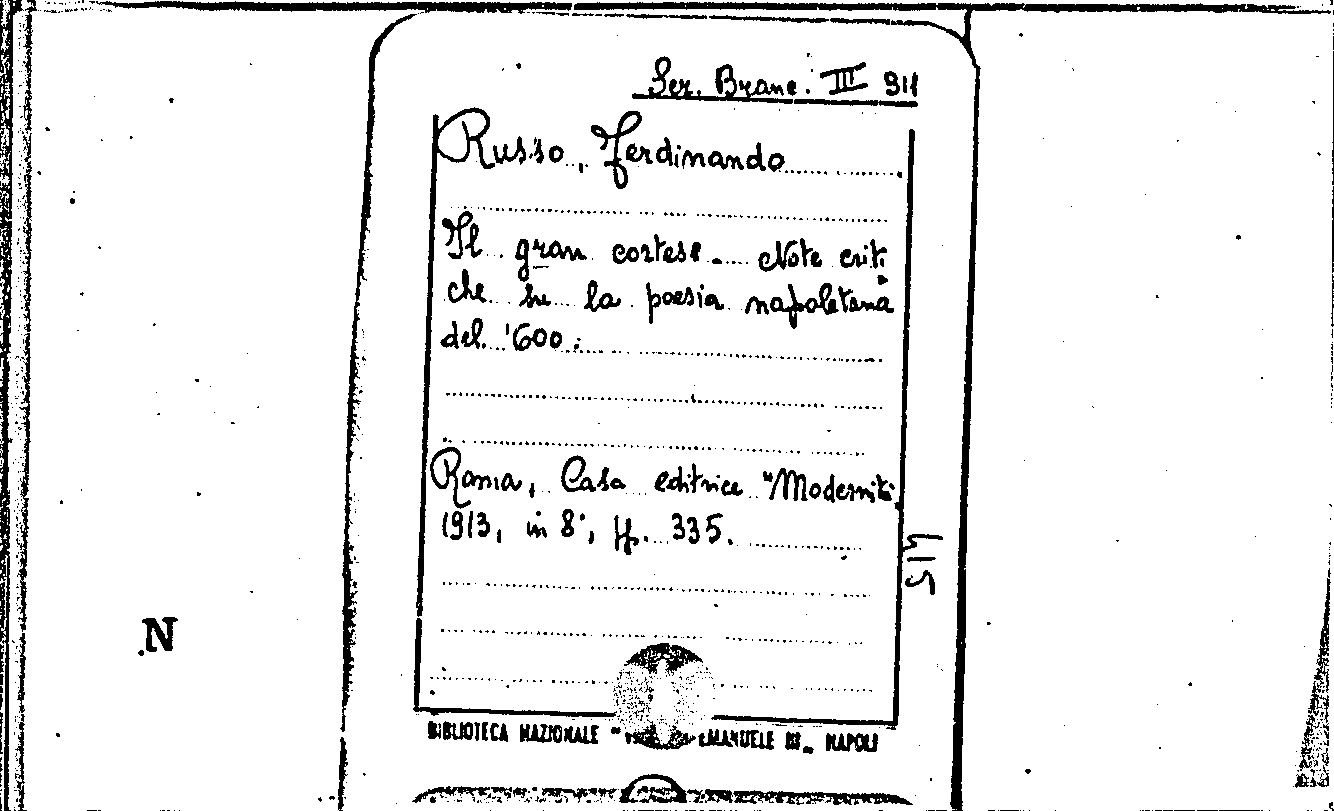 Ser. Branc. III 911
Russo, Ferdinando
Il gran cortese. Note criti
che su la poesia napoletana
del '600.
Roma, Casa editrice "Modernità
1913, in 8°, pp. 335.
415
N
BIBLIOTECA NAZIONALE " EMANUELE III„ NAPOLI